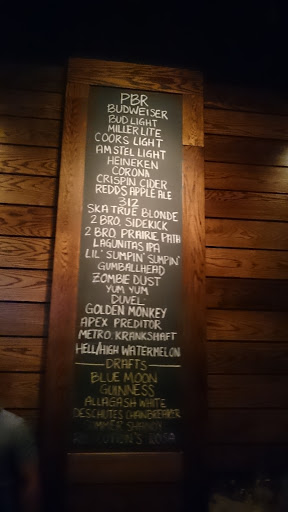 PBR
BUDWEISER
BUD LIGHT
MILLER LITE
COORS LIGHT
AMSTEL LIGHT
HEINEKEN
CORONA
CRISPIN CIDER
REDDS APPLE ALE
312
SKA TRUE BLONDE
2 BRO. SIDEKICK
2 BRO. PRAIRIE PATH
LAGUNITAS IPA
LIL' SUMPIN' SUMPIN'
GUMBALLHEAD
ZOMBIE DUST
YUM YUM
DUVEL
GOLDEN MONKEY
APEX PREDITOR
METRO. KRANKSHAFT
HELL/HIGH WATERMELON
DRAFTS
BLUE MOON
GUINNESS
ALLAGASH WHITE
DESCHUTES CHAINBREAKER
SUMMER SHANDY
REVOLUTION'S ROSA